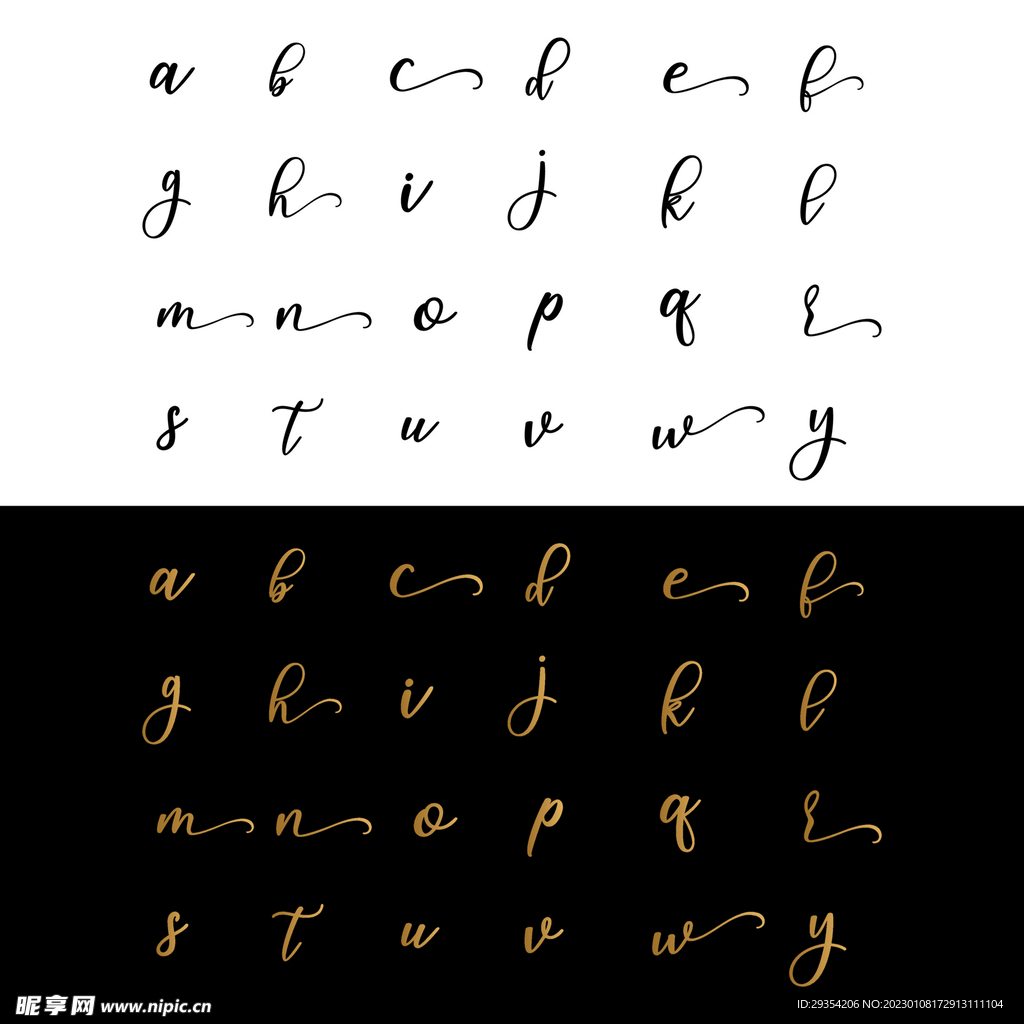 a b c d e f
g h i j k l
m n o p q r
s t u v w y
a b c d e f
g h i j k l
m n o p q r
s t u v w y
昵享网 www.nipic.cn
ID:29354206 NO:20230108172913111104